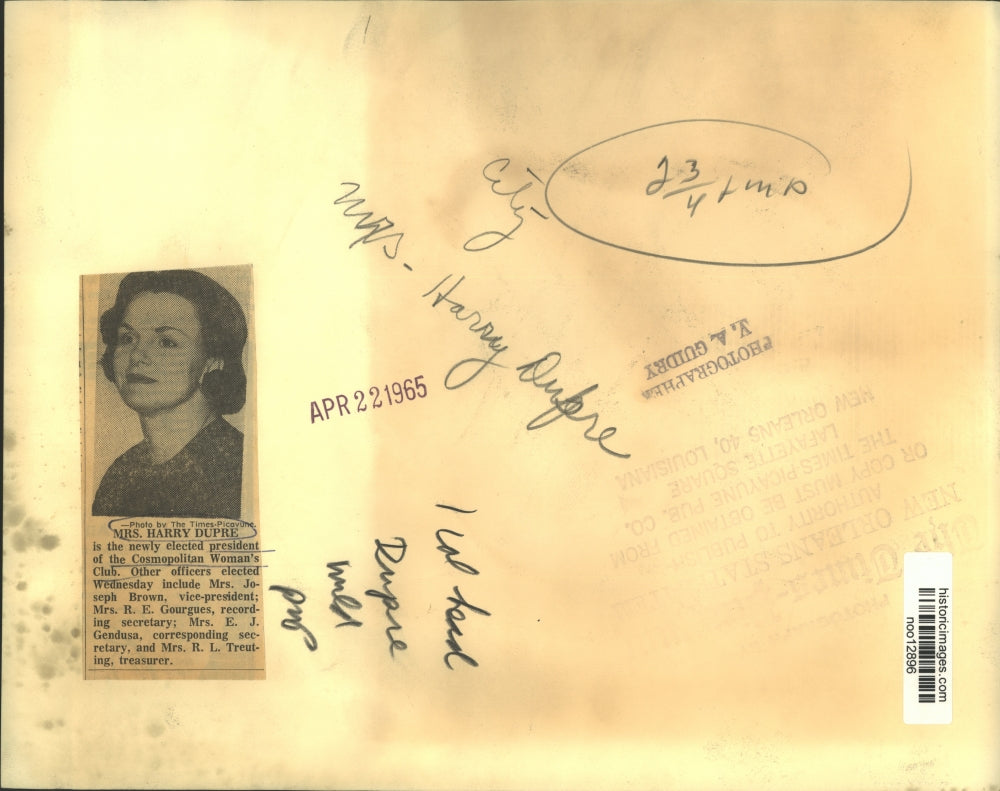 City
2 3/4 
Mrs. Harry Dupre
PHOTOGRAPHER
V. A. GUIDRY
APR 22 1965
—Photo by The Times-Picayune.
MRS. HARRY DUPRE
is the newly elected president
of the Cosmopolitan Woman's
Club. Other officers elected
Wednesday include Mrs. Jo-
seph Brown, vice-president;
Mrs. R. E. Gourgues, record-
ing secretary; Mrs. E. J.
Gendusa, corresponding sec-
retary, and Mrs. R. L. Treut-
ing, treasurer.
1 col head
Dupre
OR COPY MUST BE OBTAINED FROM
THE TIMES-PICAYUNE PUB. CO.
LAFAYETTE SQUARE
NEW ORLEANS 40, LOUISIANA
historicimages.com
noo12896